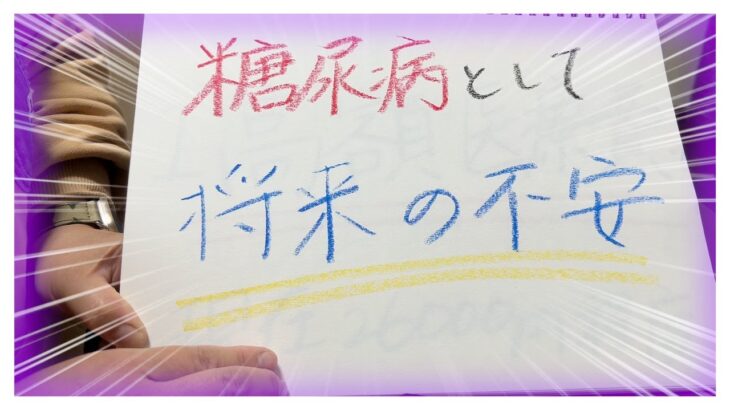 糖尿病として
将来の不安